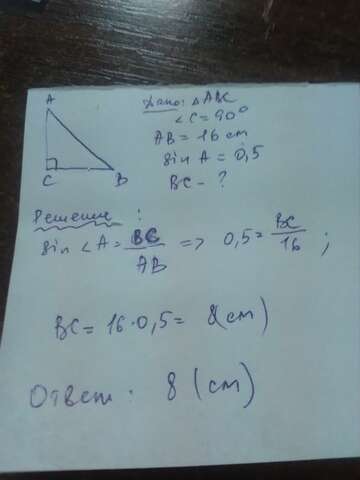 A
C
B
Дано: △ABC
∠C = 90°
AB = 16 см
sin A = 0,5
BC - ?
Решение :
sin ∠A = BC/AB => 0,5 = BC/16 ;
BC = 16 · 0,5 = 8 (см)
Ответ : 8 (см)